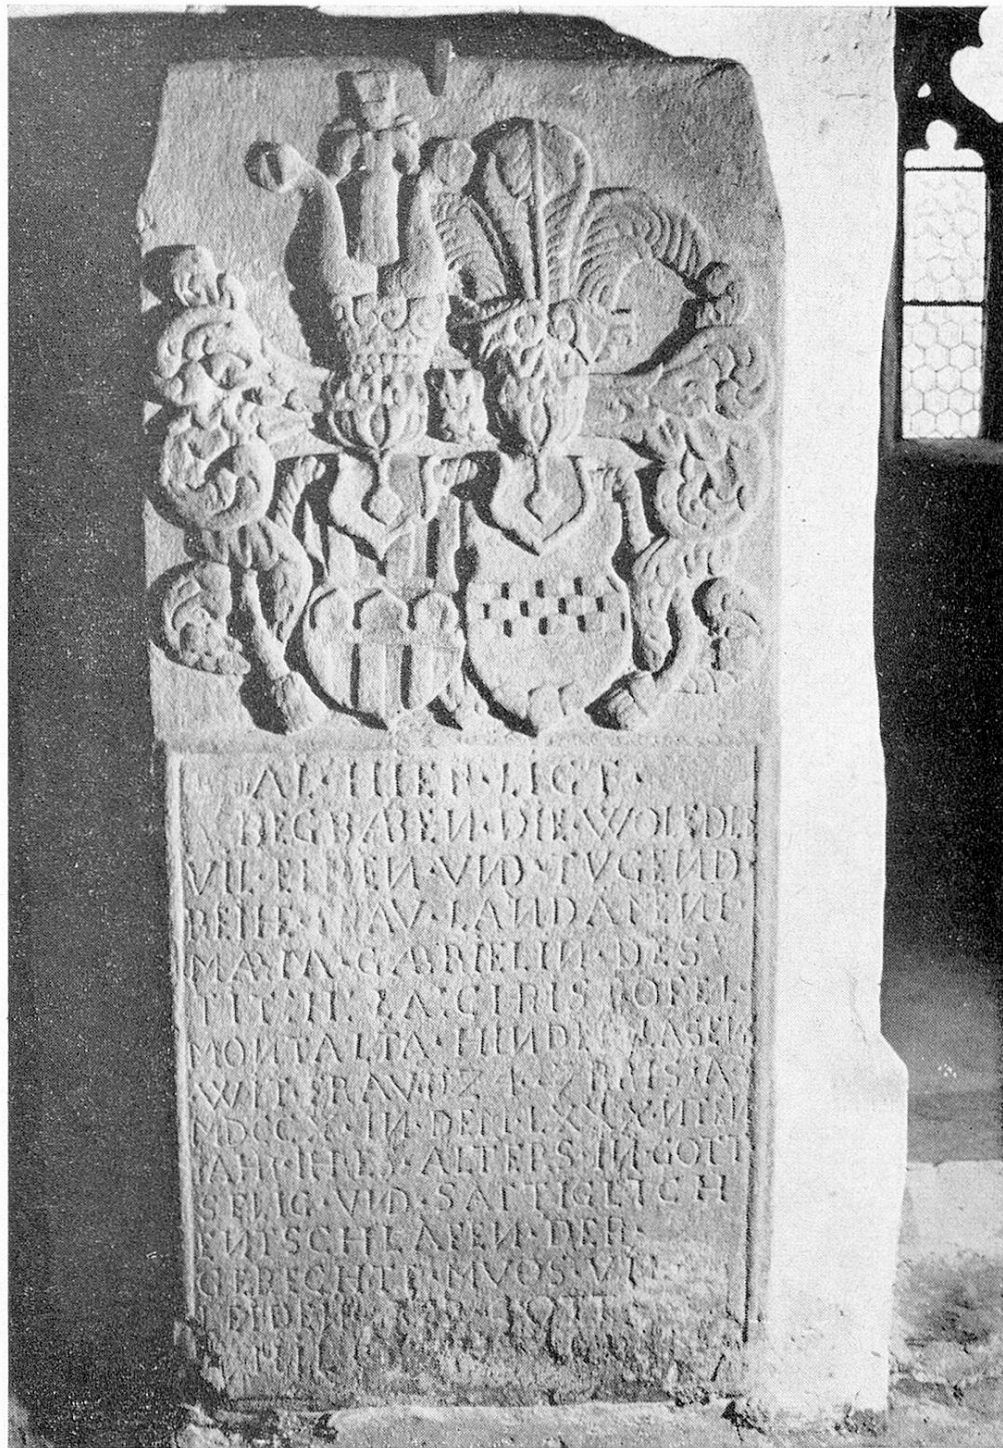 AL·HIER·LIGT·
BEGRABEN·DIE·WOLEDLE
VIL·EHREN·VND·TUGEND
REIHE·FRAV·LANDA
MARIA·GABRIELIN·DES·
TIT·H·LA·CHRISTOFEL·
MONTALTA·HINDERLASEN
WIT·FRAV
MDCCX·IN·DEM·LXXX·
IAHR·IHRES·ALTERS·IN·GOTT
SELIG·VND·SATTIGLICH
ENTSCHLAFEN·DER·
GERECHTE·MVOS·VIL
LEIDEN
HILF